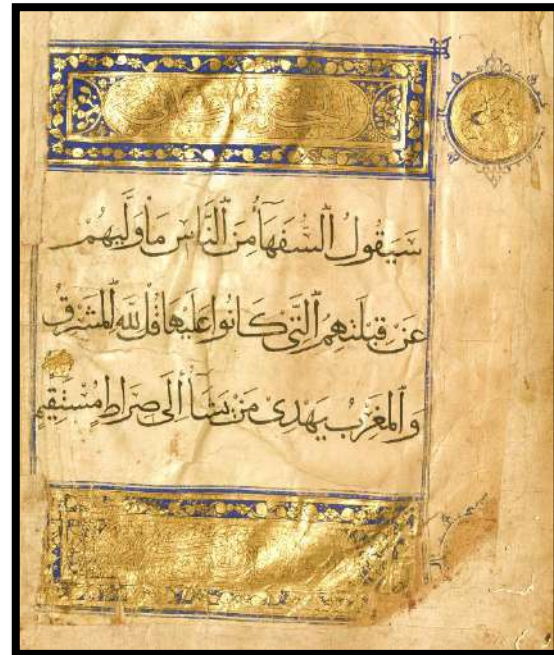 سَيَقُولُ ٱلسُّفَهَآءُ مِنَ ٱلنَّاسِ مَا وَلَّيٰهُمْ
عَن قِبْلَتِهِمُ ٱلَّتِي كَانُوا عَلَيْهَا قُل لِلَّهِ ٱلْمَشْرِقُ
وَٱلْمَغْرِبُ يَهْدِي مَن يَشَآءُ إِلَىٰ صِرَاطٍ مُسْتَقِيمٍ